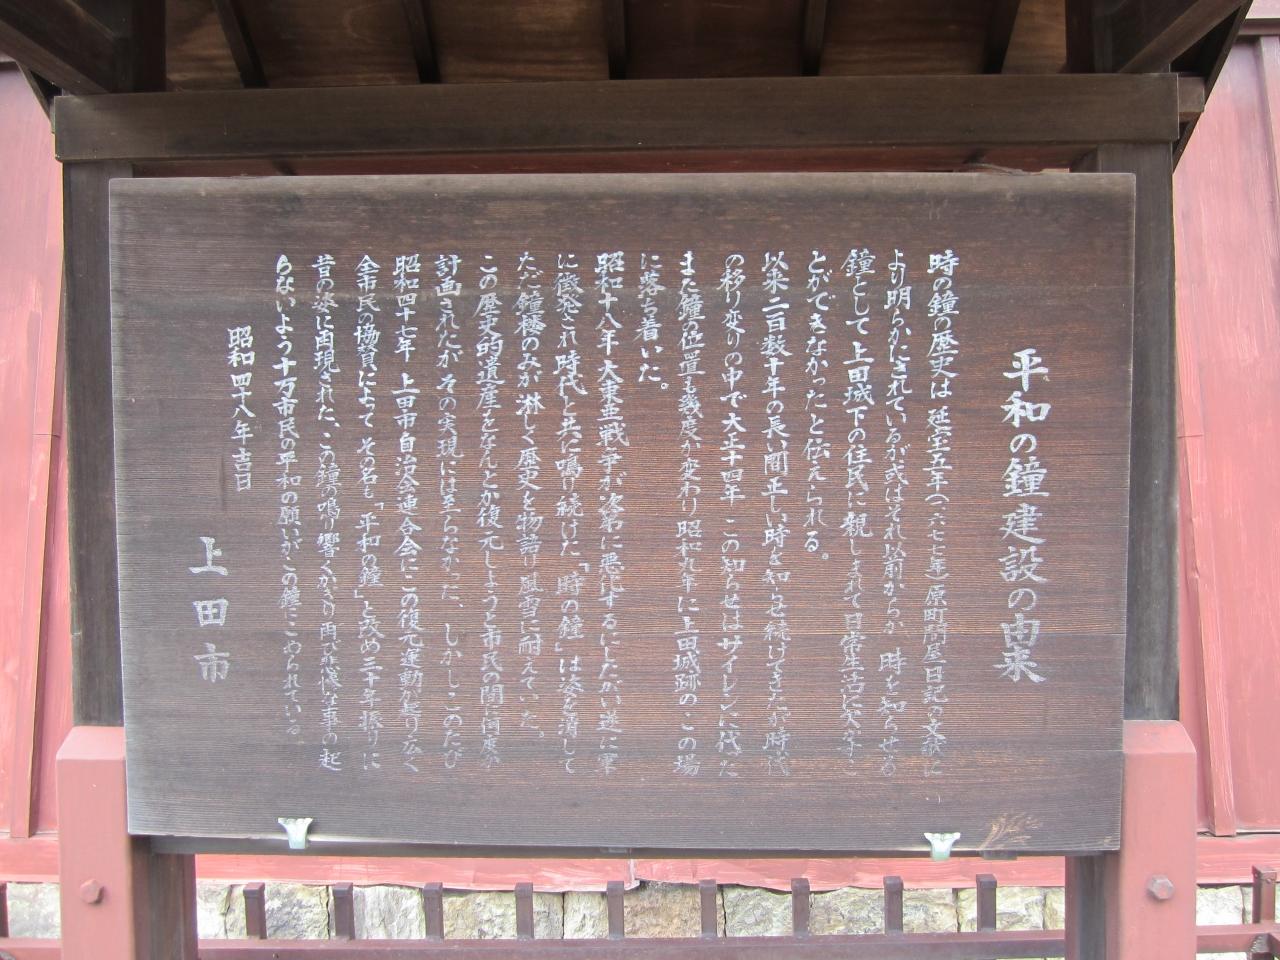 平和の鐘建設の由来
時の鐘の歴史は 延宝五年(一六七七年)原町問屋日記の文献に
より明らかにされているが或はそれ以前からか 時を知らせる
鐘として上田城下の住民に親しまれて日常生活に欠かすこ
とができなかったと伝えられる。
以来二百数十年の長い間正しい時を知らせ続けてきたが時代
の移り変りの中で大正十四年 この知らせはサイレンに代った
また鐘の位置も幾度か変わり昭和九年に上田城跡のこの場
に落ち着いた。
昭和十八年大東亜戦争が次第に悪化するにしたがい遂に軍
に徴発され時代と共に鳴り続けた「時の鐘」は姿を消して
ただ鐘楼のみが淋しく歴史を物語り風雪に耐えていた。
この歴史的遺産をなんとか復元しようと市民の間に何度か
計画されたがその実現には至らなかった、しかしこのたび
昭和四十七年 上田市自治会連合会にこの復元運動が起り広く
全市民の協賛によって その名も「平和の鐘」と改め三十年振りに
昔の姿に再現された、この鐘の鳴り響くかぎり再び悲惨な事の起
らないよう十万市民の平和の願いがこの鐘にこめられている
昭和四十八年吉日
上田市